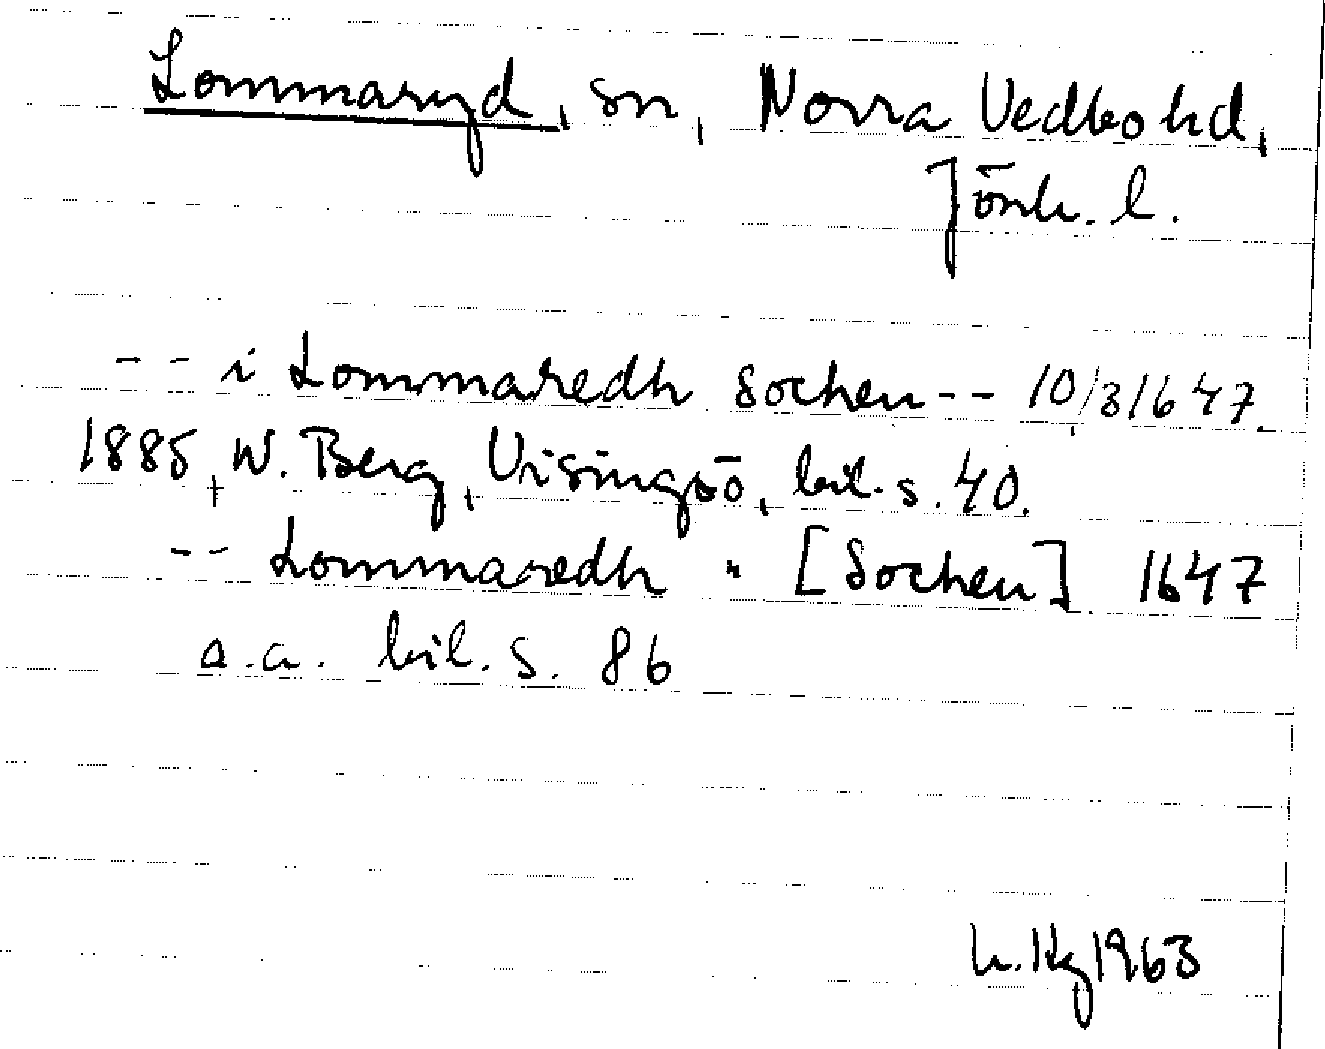 Lommaryd, sn, Norra Vedbo hd,
Jönk. l.
-- i Lommaredh Sochen -- 10/3 1647.
1885, W. Berg, Visingsö, bil. s. 40.
-- Lommaredh " [Sochen] 1647
a.a. bil. s. 86
1963